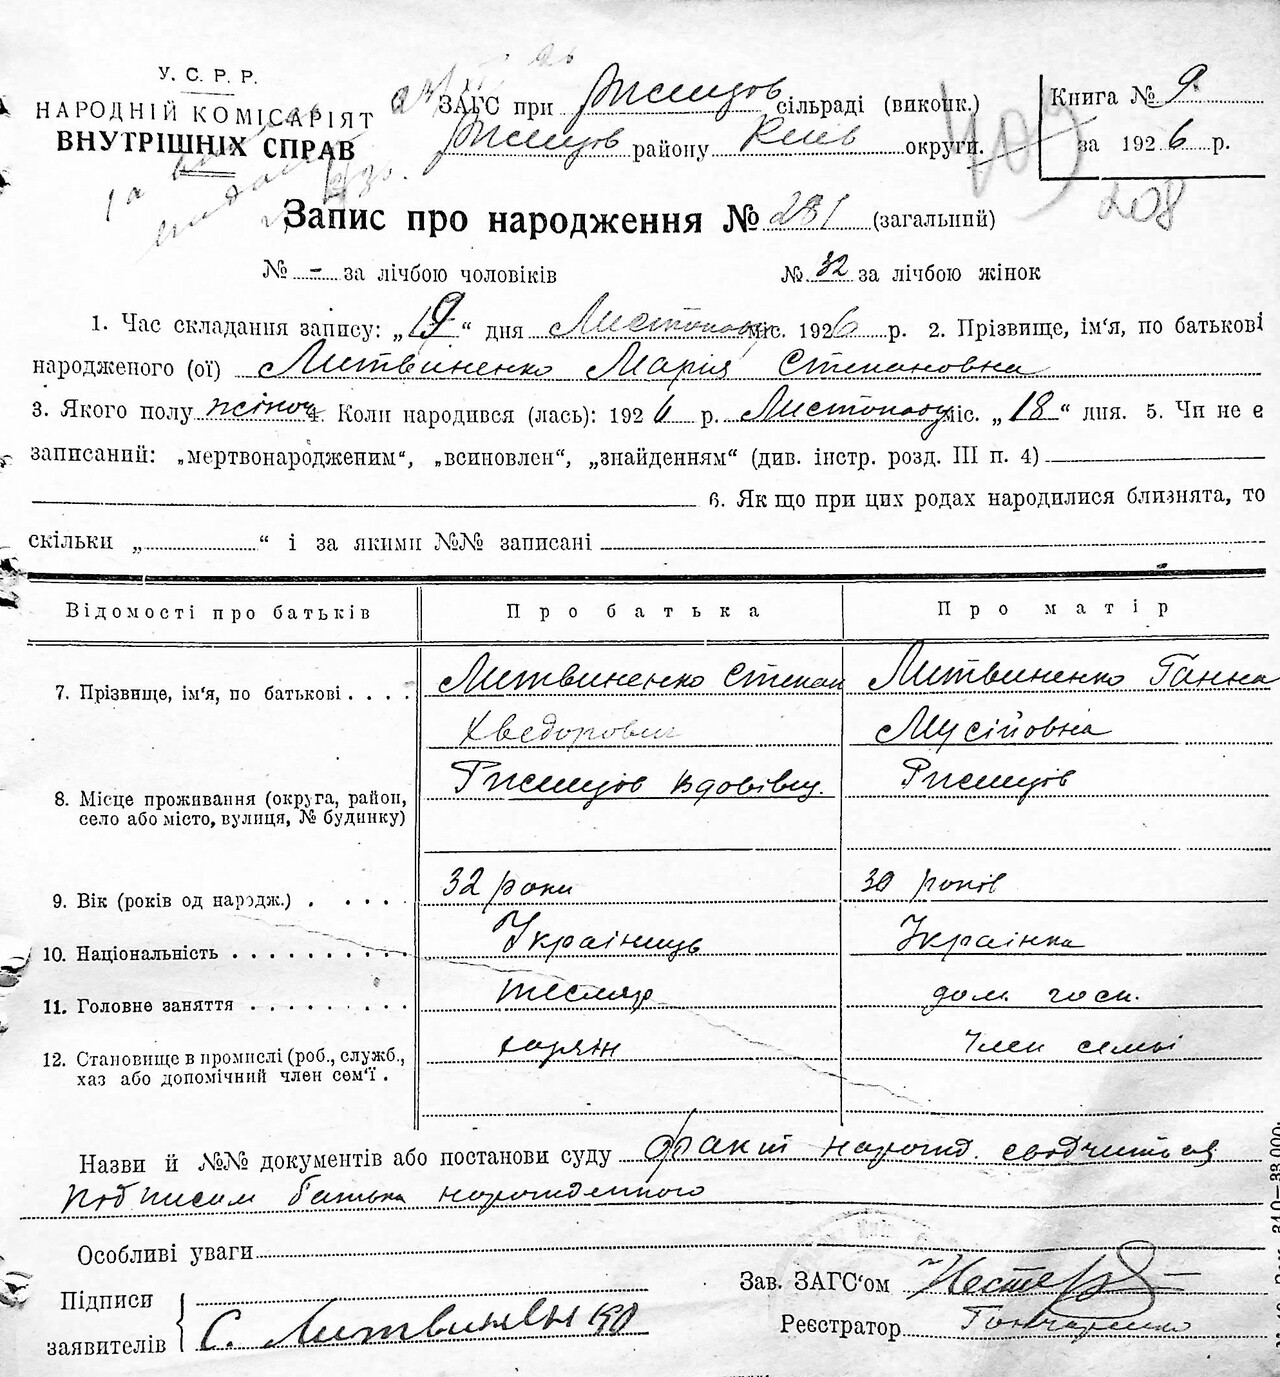 У. С. Р. Р.
НАРОДНІЙ КОМІСАРІЯТ
ВНУТРІШНІХ СПРАВ
ЗАГС при Ржищов сільраді (виконк.)
Ржищов району Київ округи.
Книга № 9
за 1926 р.
109
208
Запис про народження № 231 (загальний)
№ - за лічбою чоловіків № 32 за лічбою жінок
1. Час складання запису: „19“ дня Листопаду міс. 1926 р. 2. Прізвище, ім'я, по батькові
народженого (ої) Литвиненко Марія Степановна
3. Якого полу жіноч 4. Коли народився (лась): 1926 р. Листопаду міс. „18“ дня. 5. Чи не є
записаний: „мертвонародженим“, „всиновлен“, „знайденням“ (див. інстр. розд. III п. 4)
6. Як що при цих родах народилися близнята, то
скільки „ “ і за якими №№ записані
Відомості про батьків Про батька Про матір
7. Прізвище, ім'я, по батькові . . . . Литвиненко Степан Литвиненко Ганна
Хведорович Мусійовна
8. Місце проживання (округа, район, село або місто, вулиця, № будинку) Ржищов Ржищів
9. Вік (років од народж.) . . . . . 32 роки 30 років
10. Національність . . . . . . . . . . Українець Українка
11. Головне заняття . . . . . . . . . тесляр дом. госп.
12. Становище в промислі (роб., служб., хаз або допомічний член сем'ї . хазяїн Член семьі
Назви й №№ документів або постанови суду факт нарожд. свідчиться
подписом батька нарожденного
Особливі уваги
Підписи
заявителів С. Литвиненко
Зав. ЗАГС'ом Нестер
Реєстратор Гончаренко